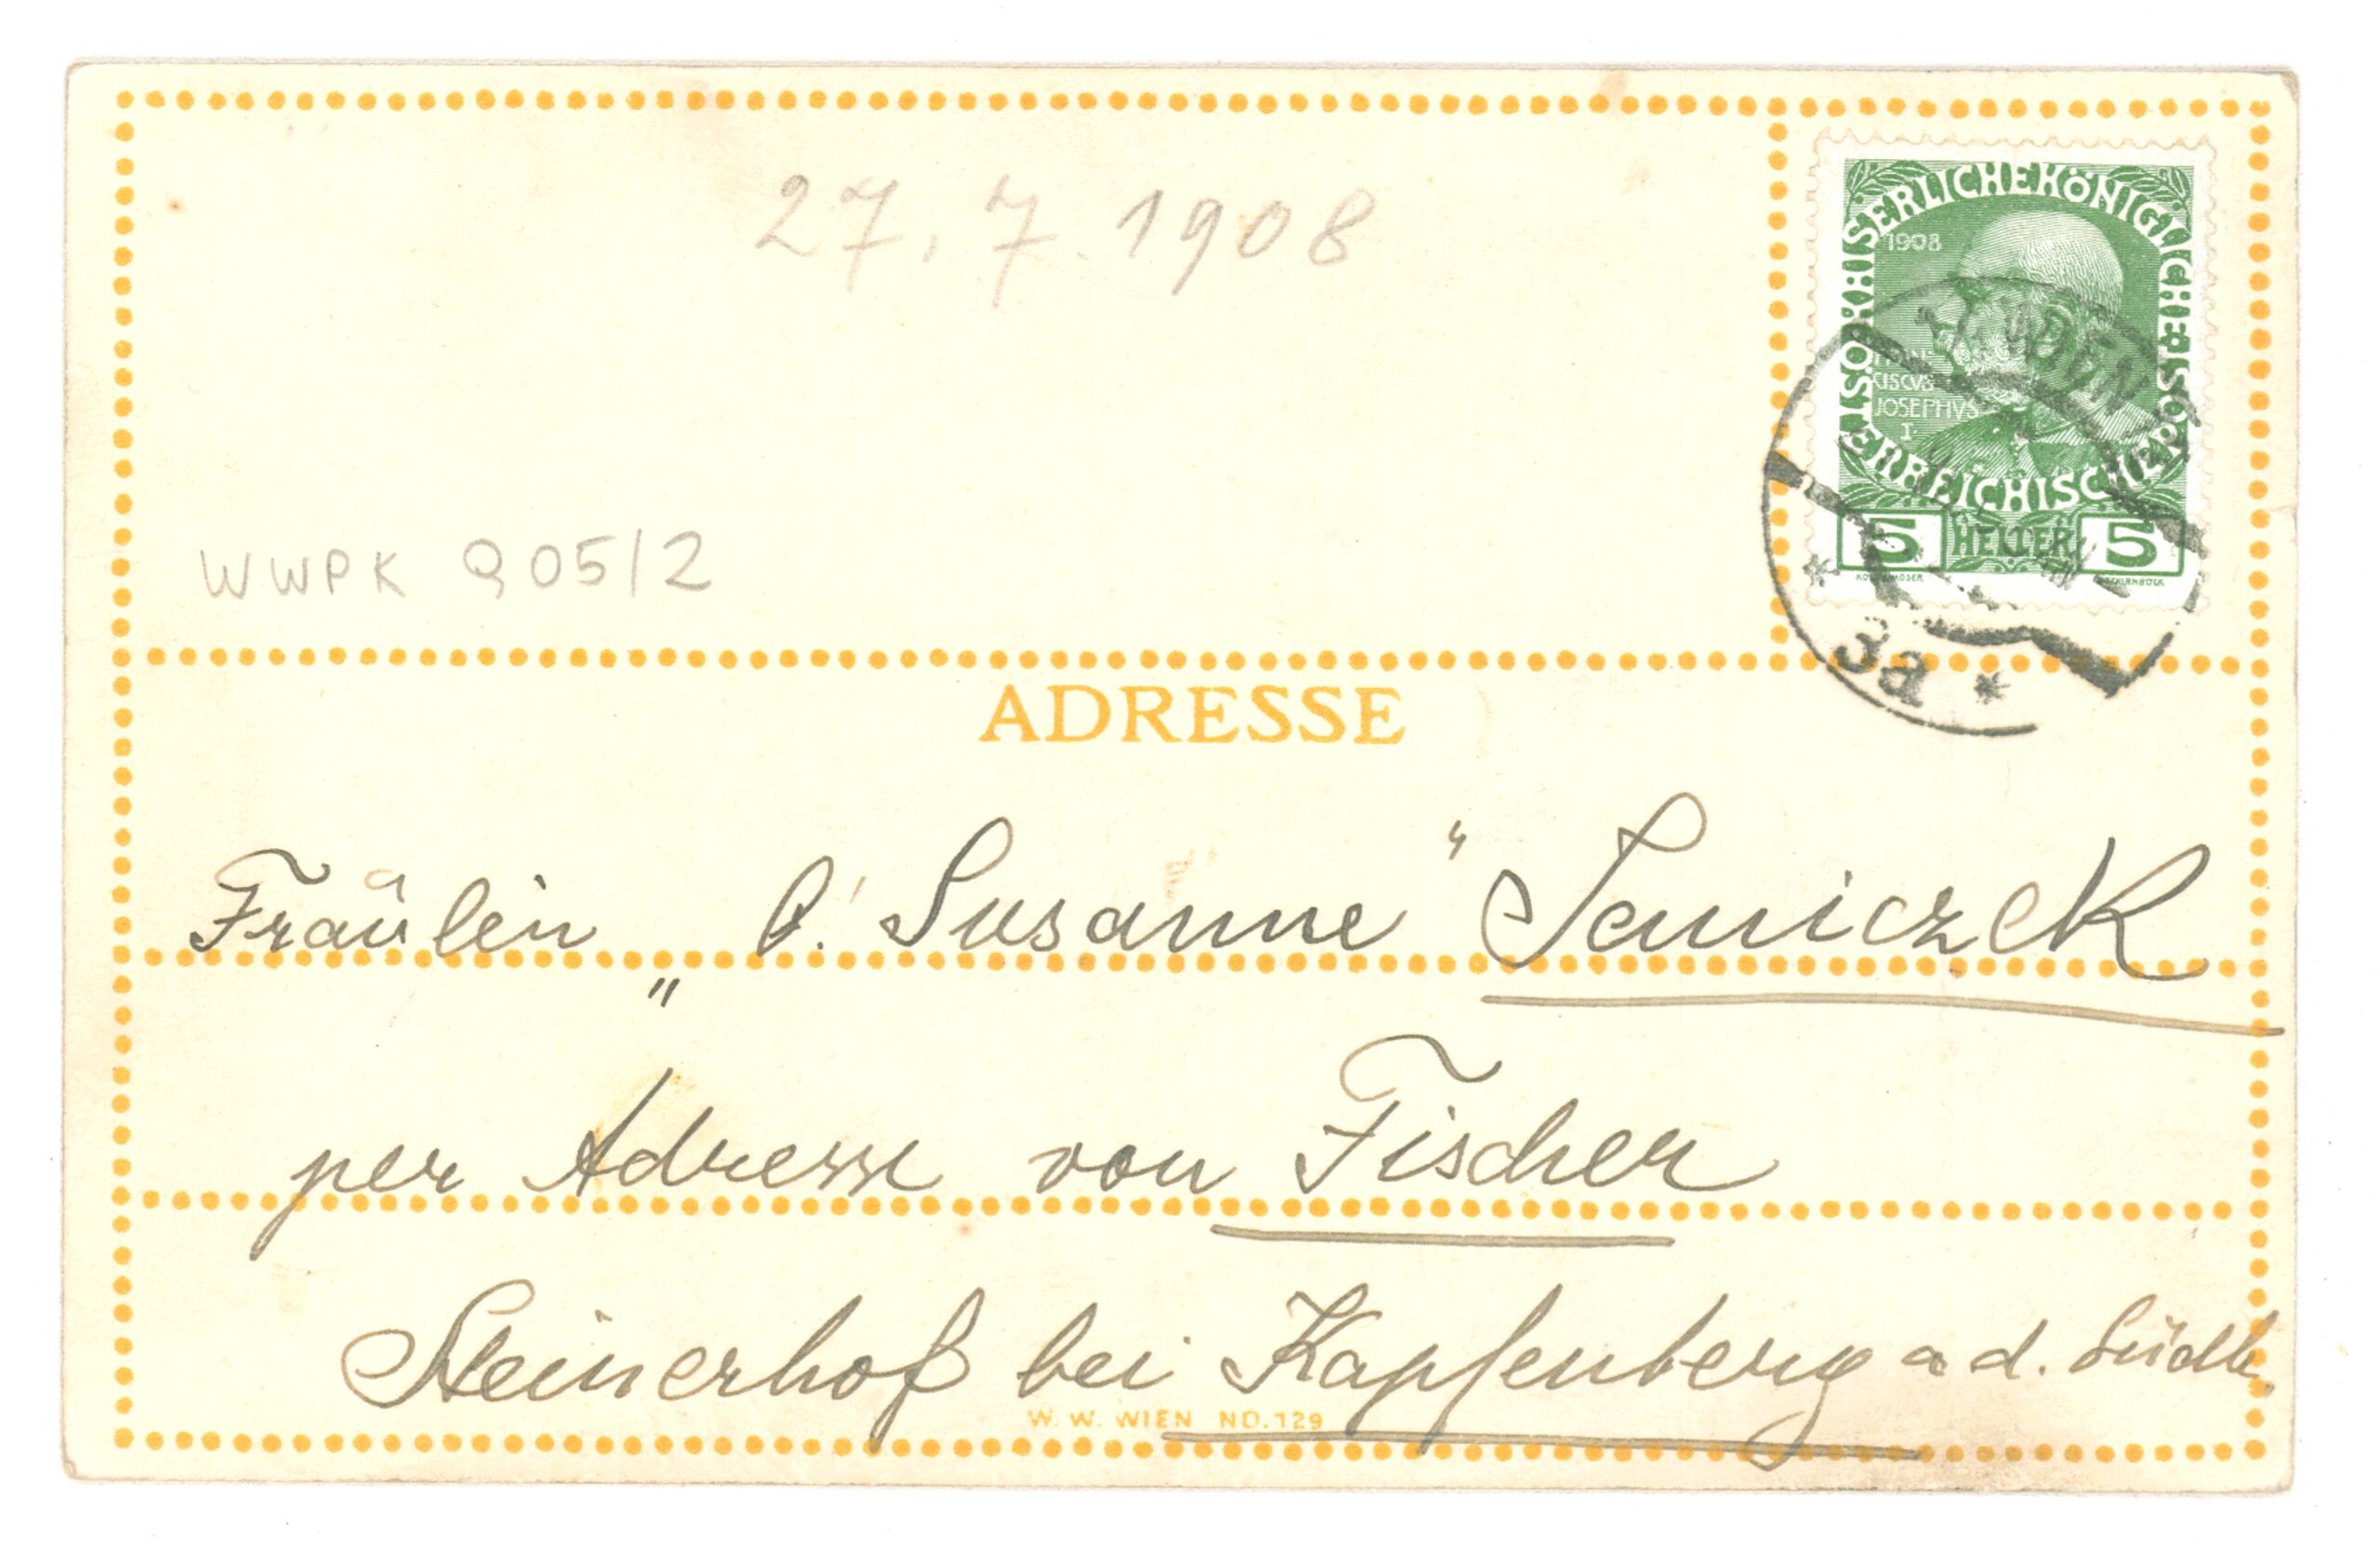 27. 7. 1908
KAISERLICHEKÖNIGLICHE ÖSTERREICHISCHE
1908
CISCVS
JOSEPHVS
I.
5 HELLER 5
3a
WWPK Q05/2
ADRESSE
Fräulein „O! Susanne“ Janiczek
per Adresse von Fischer
Steinerhof bei Kapfenberg a d. Südb.
W. W. WIEN NO. 129